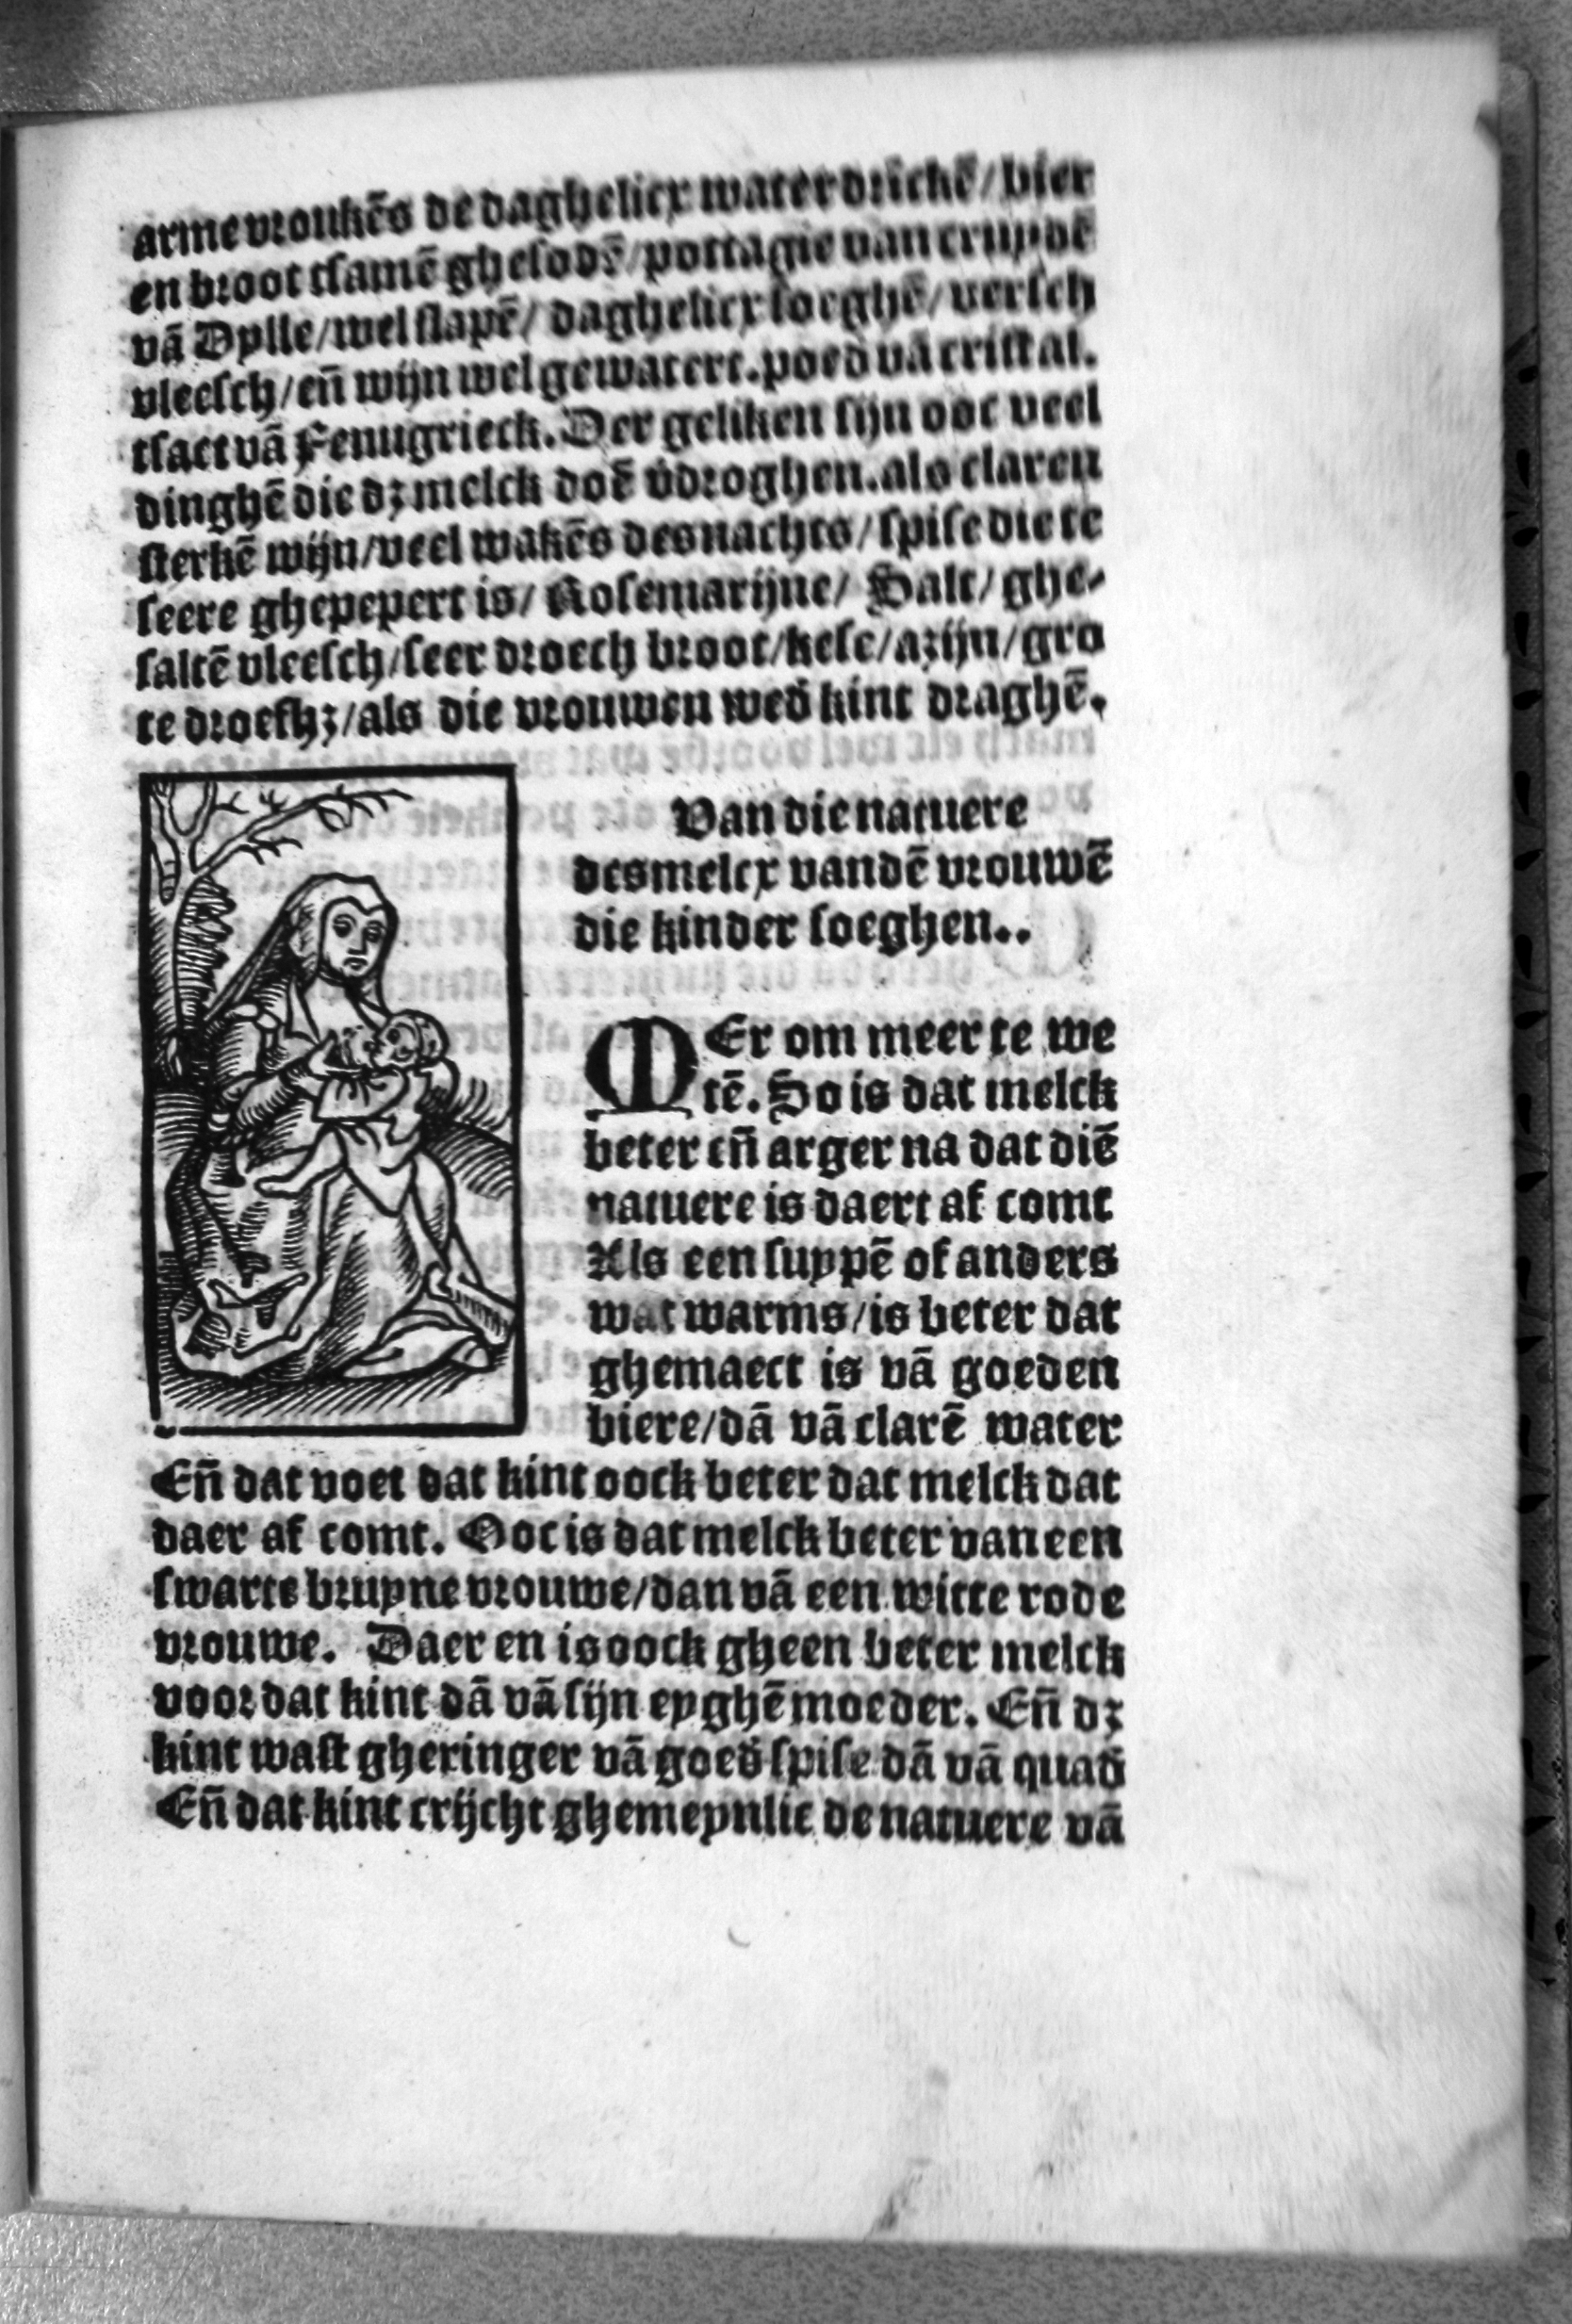 arme vroukēs de daghelicx water drīckē / bier
en broot tsamē ghesodē / pottagie van cruydē
vā Dylle / wel slapē / daghelicx soeghē / versch
vleesch / eñ wijn wel gewatert. poed vā cristal.
tsaet vā Fenugrieck. Der geliken sijn ooc veel
dinghē die dz melck doē v̄droghen. als claren
sterkē wijn / veel wakēs des nachts / spise die te
seere ghepepert is / Rosemarijne / Salt / ghe-
saltē vleesch / seer droech broot / kese / azijn / gro
te droefhz / als die vrouwen wed̄ kint draghē.
Van die natuere
des melcx vandē vrouwē
die kinder soeghen..
MEr om meer te we
tē. So is dat melck
beter eñ arger na dat diē
natuere is daert af comt
Als een suppē of anders
wat warms / is beter dat
ghemaect is vā goeden
biere / dā vā clarē water
Eñ dat voet dat kint oock beter dat melck dat
daer af comt. Ooc is dat melck beter van een
swarte bruyne vrouwe / dan vā een witte rode
vrouwe. Daer en is oock gheen beter melck
voor dat kint dā vā sijn eyghē moeder. Eñ dz
kint wast gheringer vā goed̄ spise dā vā quad̄
Eñ dat kint crijcht ghemeynlic de natuere vā